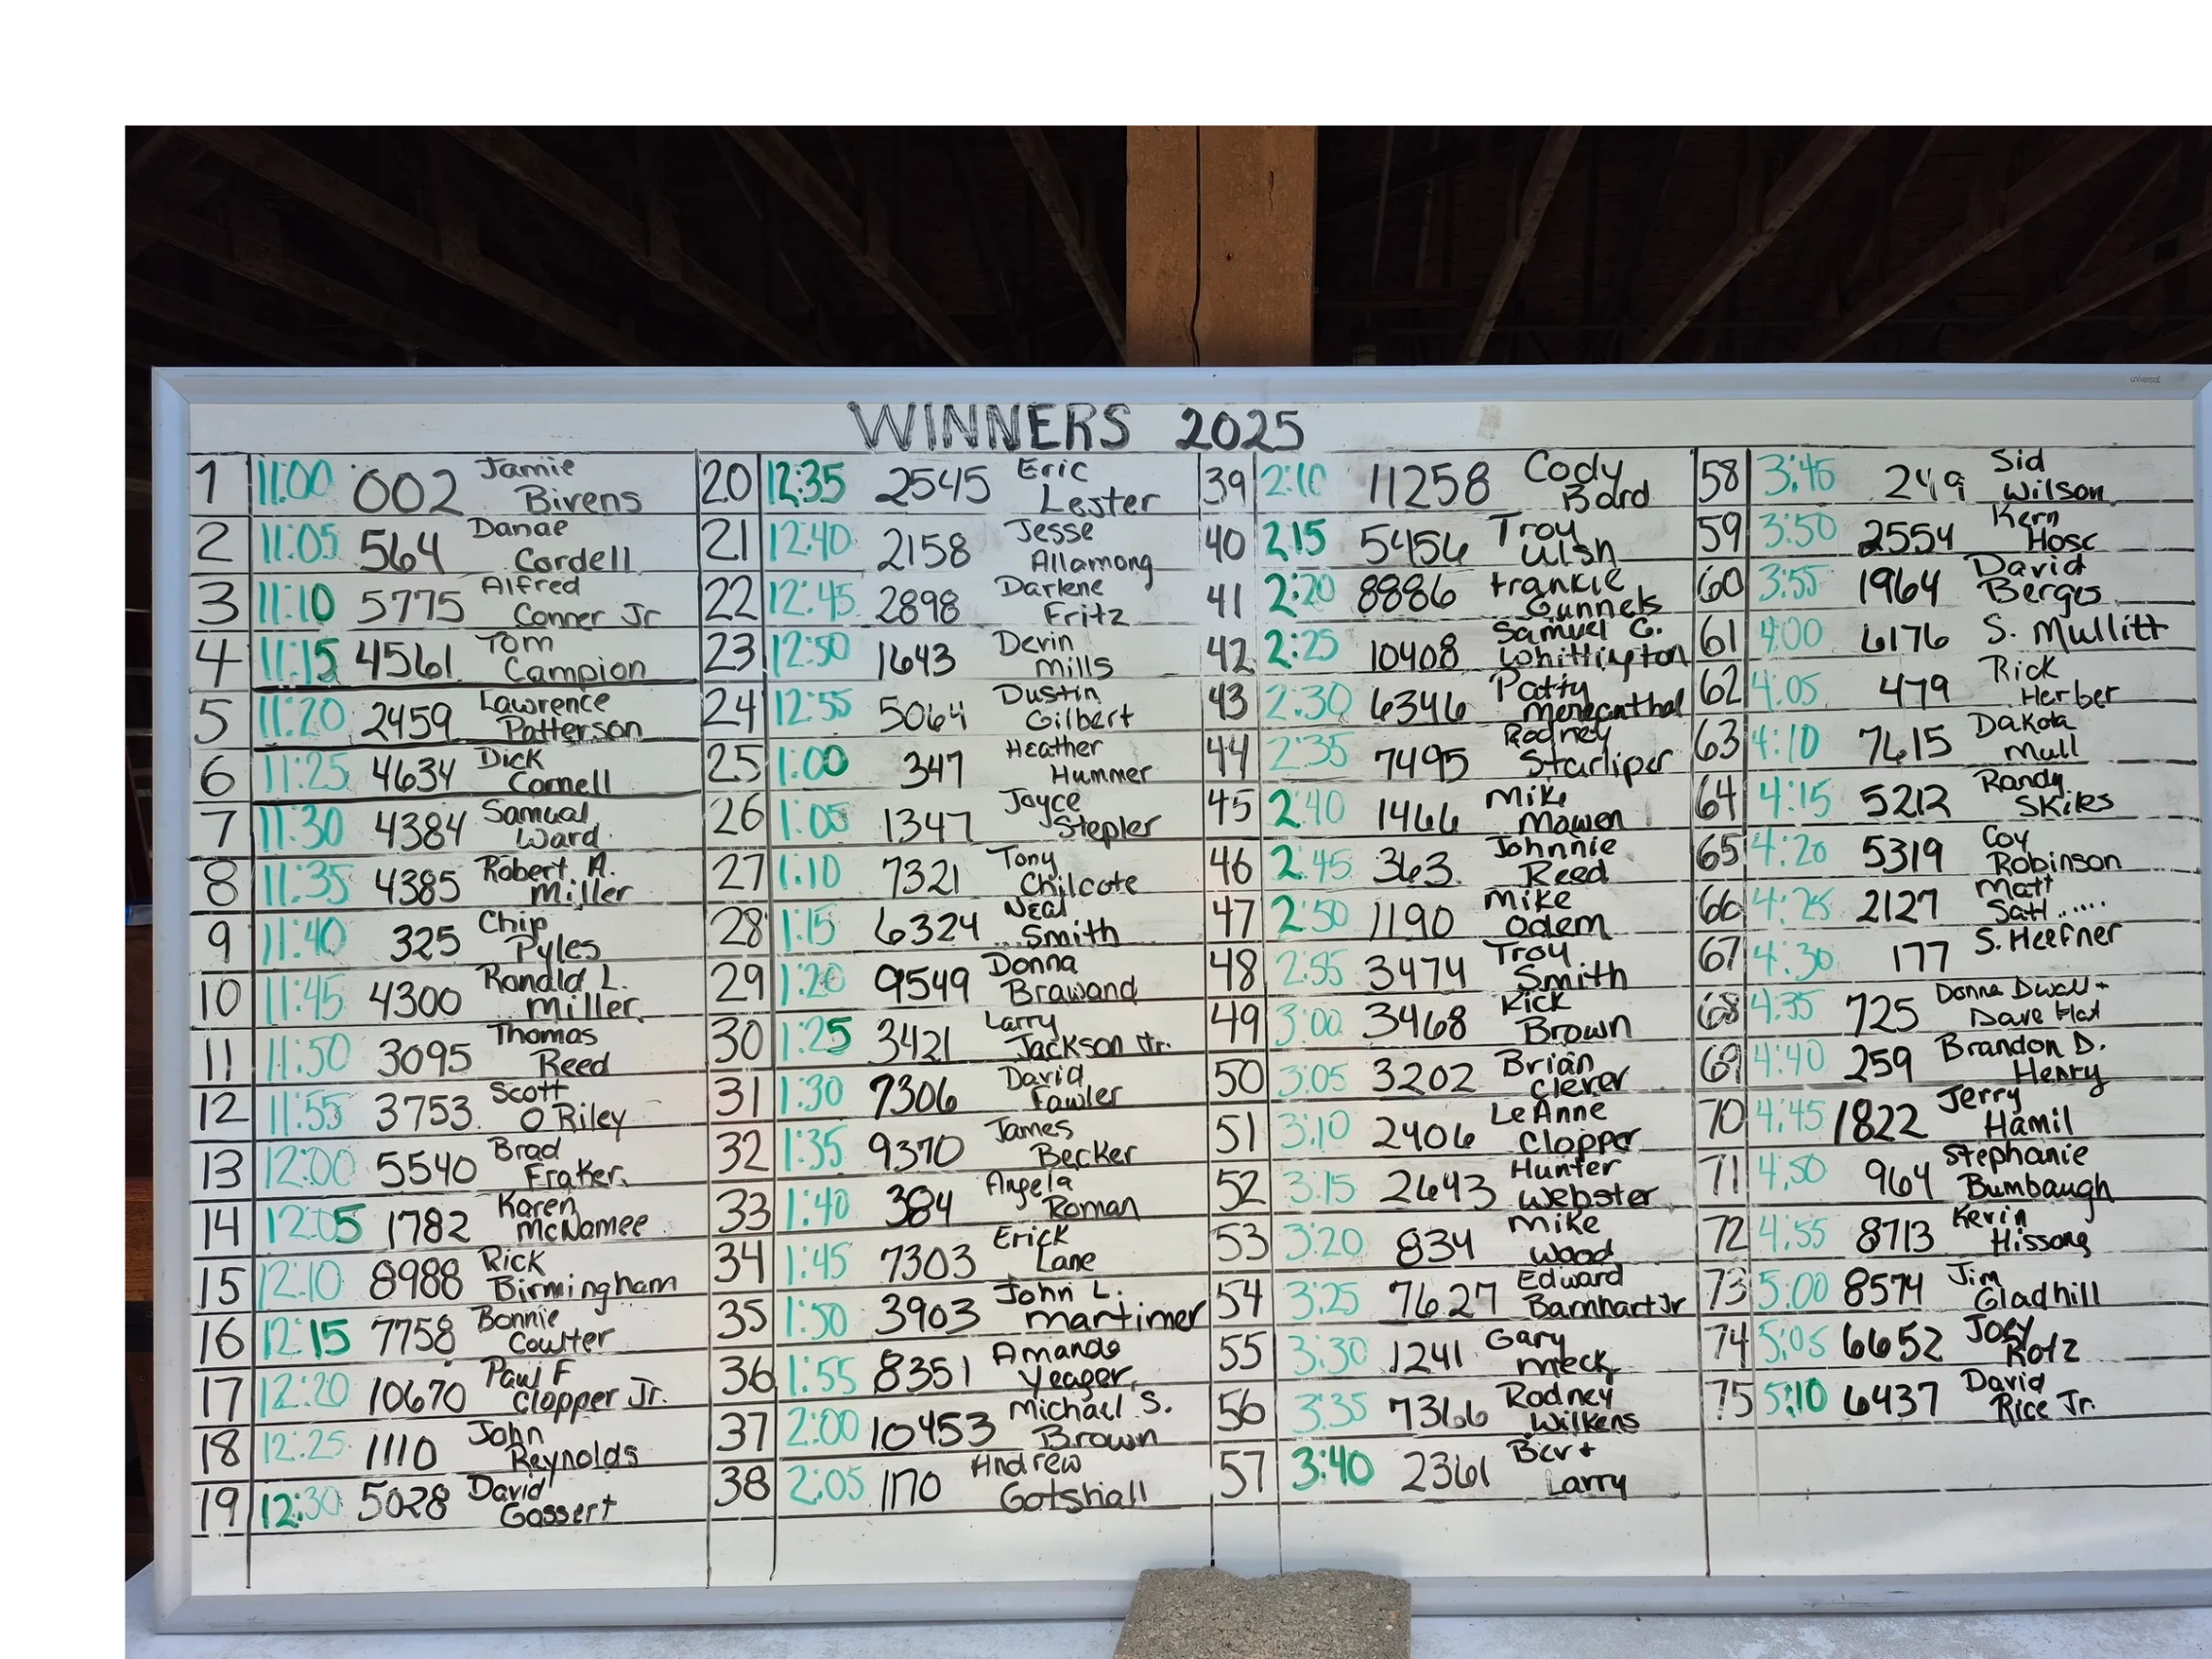 universal
WINNERS 2025
1 11:00 002 Jamie Birens
2 11:05 564 Danae Cordell
3 11:10 5775 Alfred Conner Jr
4 11:15 4561 Tom Campion
5 11:20 2459 Lawrence Patterson
6 11:25 4634 Dick Cornell
7 11:30 4384 Samual Ward
8 11:35 4385 Robert A. Miller
9 11:40 325 Chip Pyles
10 11:45 4300 Ronald L. Miller
11 11:50 3095 Thomas Reed
12 11:55 3753 Scott O Riley
13 12:00 5540 Brad Fraker
14 12:05 1782 Karen McNamee
15 12:10 8988 Rick Birmingham
16 12:15 7758 Bonnie Coulter
17 12:20 10670 Paul F Clopper Jr.
18 12:25 1110 John Reynolds
19 12:30 5028 David Gossert
20 12:35 2545 Eric Lester
21 12:40 2158 Jesse Allamong
22 12:45 2898 Darlene Fritz
23 12:50 1643 Devin Mills
24 12:55 5064 Dustin Gilbert
25 1:00 347 Heather Hummer
26 1:05 1347 Joyce Stepler
27 1:10 7321 Tony Chilcote
28 1:15 6324 Neal Smith
29 1:20 9549 Donna Brawand
30 1:25 3421 Larry Jackson Jr.
31 1:30 7306 David Fowler
32 1:35 9370 James Becker
33 1:40 384 Angela Roman
34 1:45 7303 Erick Lane
35 1:50 3903 John L. Martimer
36 1:55 8351 Amanda Yeager
37 2:00 10453 Michael S. Brown
38 2:05 1170 Andrew Gotshall
39 2:10 11258 Cody Bard
40 2:15 5456 Troy Ulsh
41 2:20 8886 Frankie Gunnels
42 2:25 10408 Samuel G. Whittington
43 2:30 6346 Patty
44 2:35 7495 Rodney Starliper
45 2:40 1466 Mike Mowen
46 2:45 363 Johnnie Reed
47 2:50 1190 Mike Odem
48 2:55 3474 Troy Smith
49 3:00 3468 Rick Brown
50 3:05 3202 Brian Clever
51 3:10 2406 LeAnne Clopper
52 3:15 2643 Hunter Webster
53 3:20 834 Mike Wood
54 3:25 7627 Edward Barnhart Jr
55 3:30 1241 Gary Meck
56 3:35 7366 Rodney Wilkens
57 3:40 2361 Larry
58 3:45 249 Sid Wilson
59 3:50 2554 Kern Hose
60 3:55 1964 David Berges
61 4:00 6176 S. Mullitt
62 4:05 479 Rick Herber
63 4:10 7615 Dakota Mull
64 4:15 5212 Randy Skiles
65 4:20 5319 Coy Robinson
66 4:25 2127 Matt
67 4:30 177 S. Heefner
68 4:35 725 Donna Dave
69 4:40 259 Brandon D. Henry
70 4:45 1822 Jerry Hamil
71 4:50 964 Stephanie Bumbaugh
72 4:55 8713 Kevin Hissong
73 5:00 8574 Jim Gladhill
74 5:05 6652 Joey Kotz
75 5:10 6437 David Rice Jr.